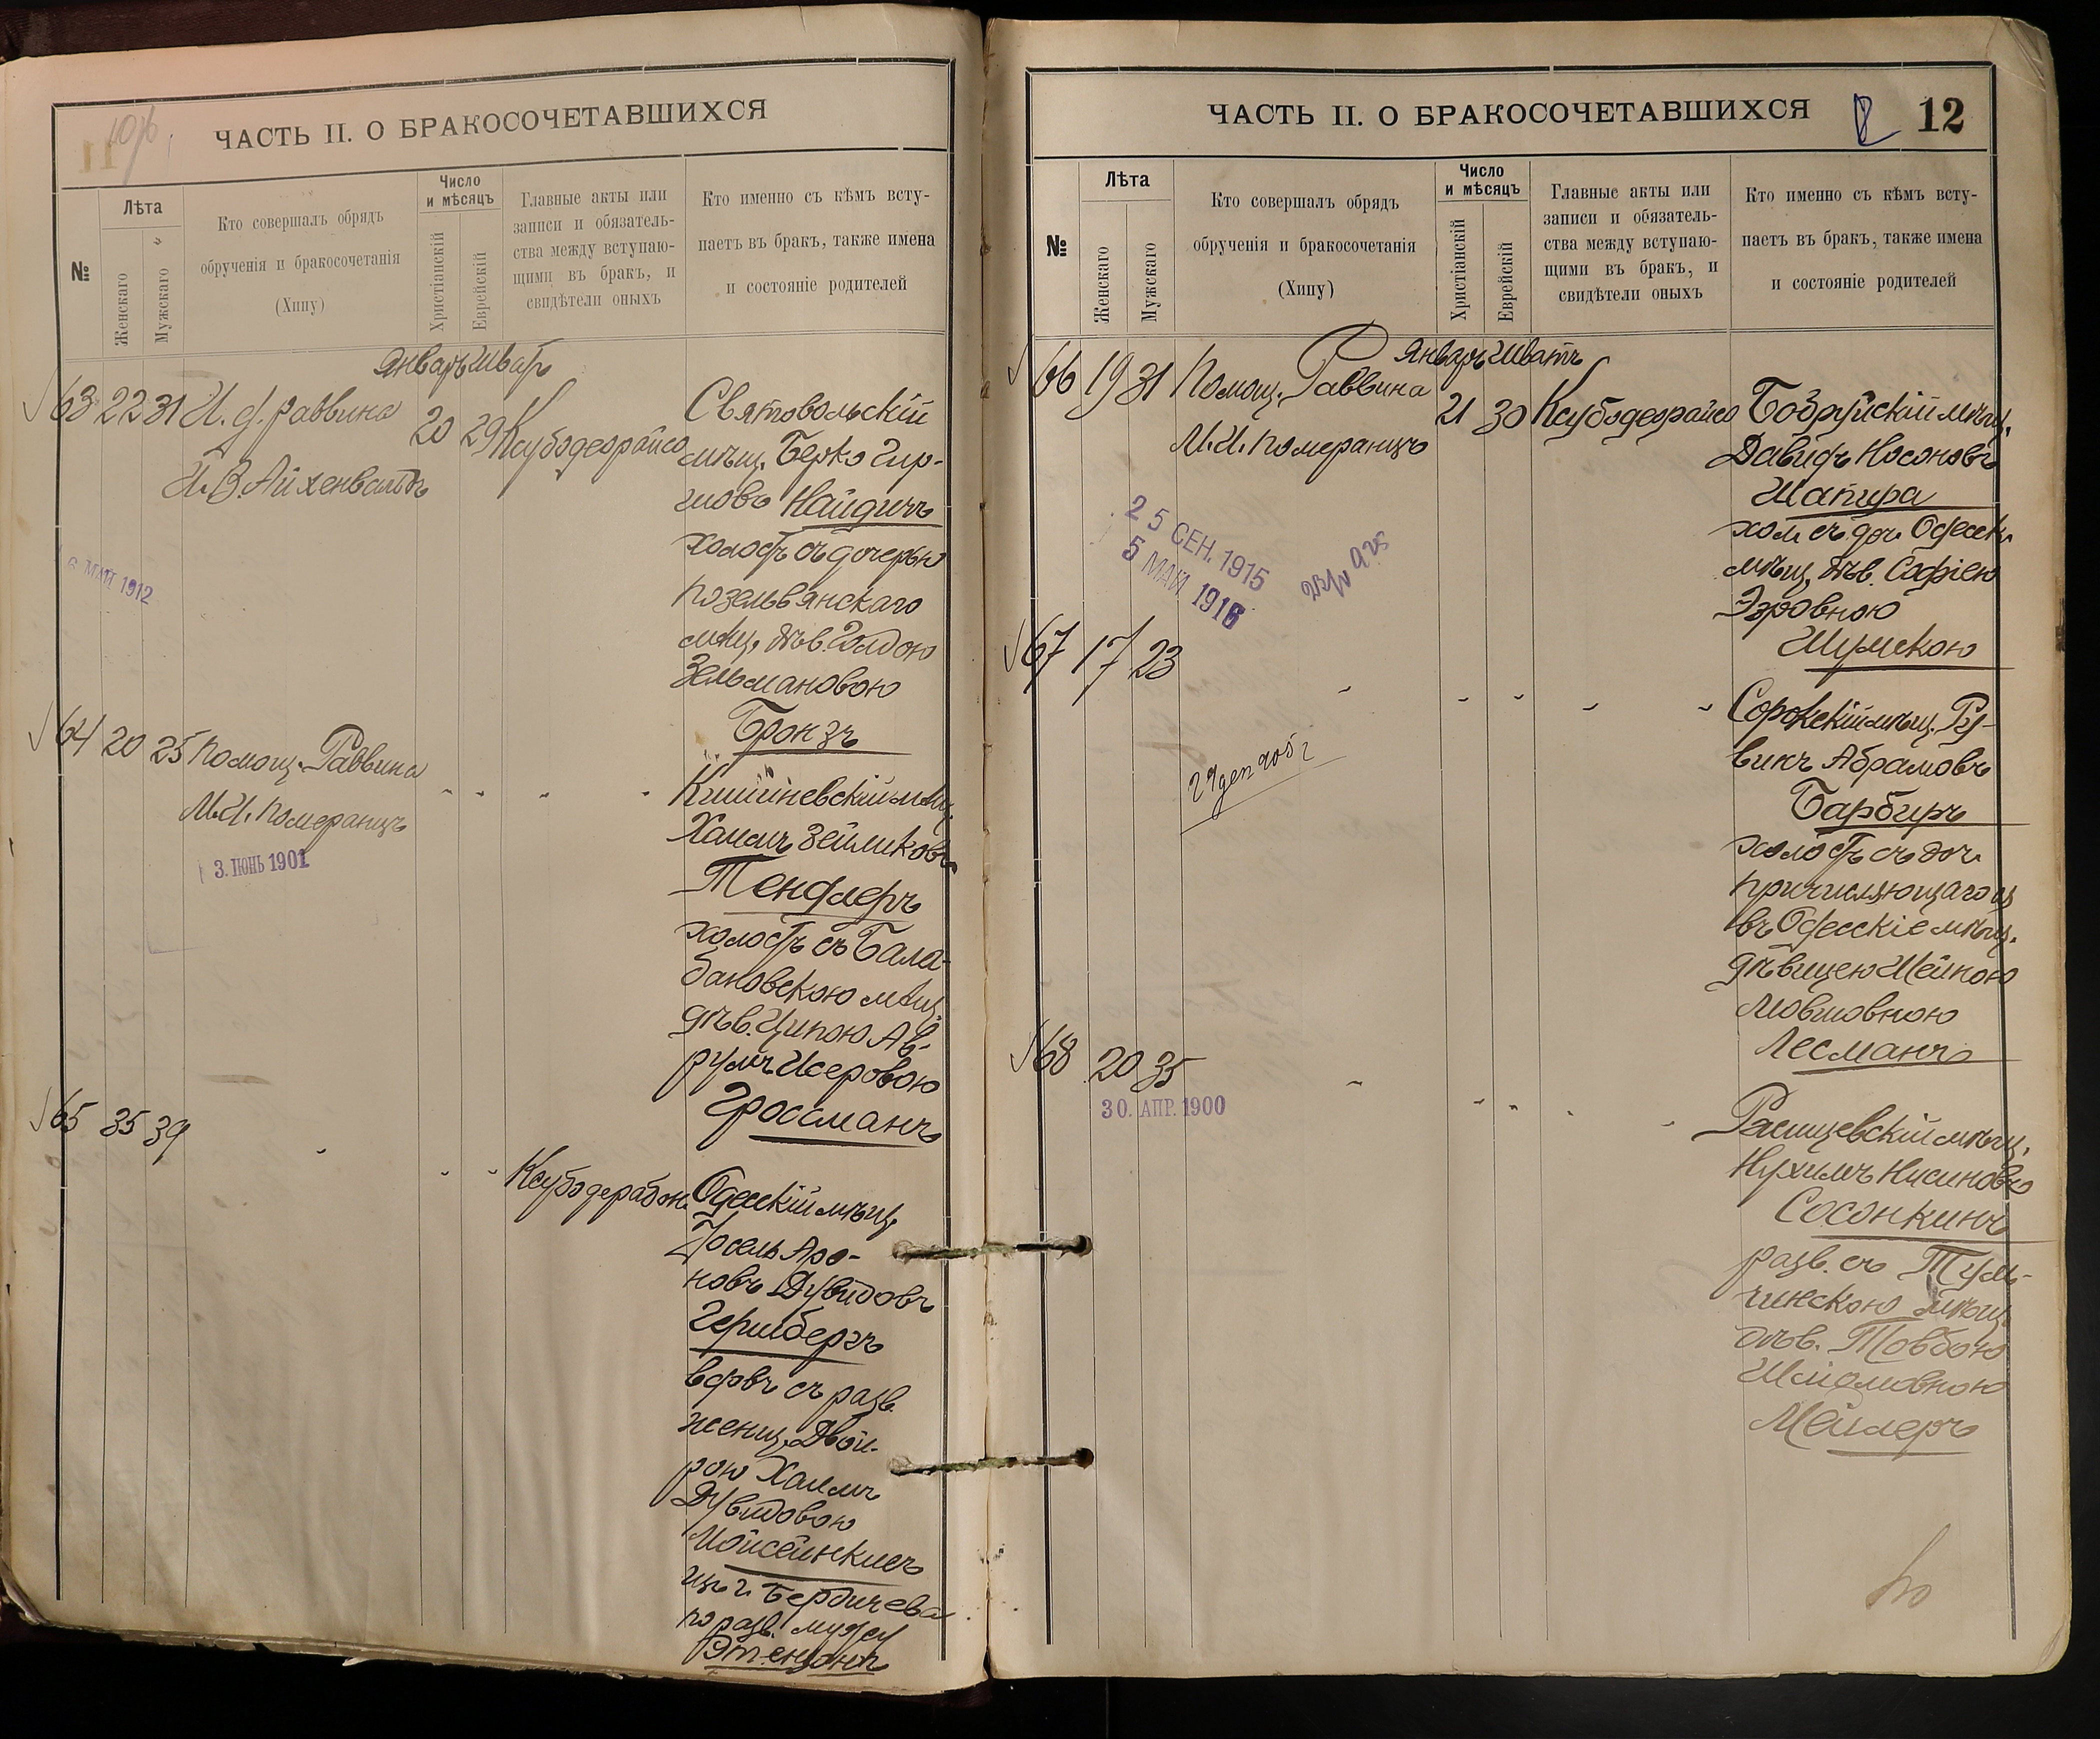 ЧАСТЬ II. О БРАКОСОЧЕТАВШИХСЯ
№
Лѣта
Женскаго
Мужскаго
Кто совершалъ обрядъ
обрученія и бракосочетанія
(Хипу)
Число
и мѣсяцъ
Христіанскій
Еврейскій
Главные акты или
записи и обязатель-
ства между вступаю-
щими въ бракъ, и
свидѣтели оныхъ
Кто именно съ кѣмъ всту-
паетъ въ бракъ, также имена
и состояніе родителей
Январь Шватъ
63 22 31 И. д. раввина
И. В. Айхенвальдъ
20 29 Ксубодеорайсо
Святовольскій
мѣщ. Берко Гир-
шовъ Найдичъ
холостъ съ дочерью
Позельвянскаго
мѣщ. дѣв. Голдою
Зельмановою
Бронзъ
6 МАЙ 1912
64 20 25 Помощ. Раввина
М. И. Померанцъ
3. ІЮНЬ 1901
Кишиневскій мѣщ.
Хаимъ Зейликовъ
Тендлеръ
холостъ съ Бала-
бановскою мѣщ.
дѣв. Ципою Ав-
румъ Исеровою
Гроссманъ
65 35 39
Ксубодерабонъ
Одесскій мѣщ.
Іосель Аро-
новъ Дувидовъ
Гершбергъ
вдовъ съ разв.
женщ. Двой-
рою Хаимъ
Дувидовою
Мойсейнкисъ
изъ г. Бердичева
по разв. мужу
ЧАСТЬ II. О БРАКОСОЧЕТАВШИХСЯ
12
№
Лѣта
Женскаго
Мужскаго
Кто совершалъ обрядъ
обрученія и бракосочетанія
(Хипу)
Число
и мѣсяцъ
Христіанскій
Еврейскій
Главные акты или
записи и обязатель-
ства между вступаю-
щими въ бракъ, и
свидѣтели оныхъ
Кто именно съ кѣмъ всту-
паетъ въ бракъ, также имена
и состояніе родителей
Январь Шватъ
66 19 31 Помощ. Раввина
М. И. Померанцъ
21 30 Ксубодеорайсо
Бобруйскій мѣщ.
Давидъ Носоновъ
Шапира
хол. съ доч. Одесск.
мѣщ. дѣв. Софіею
Эзровною
Шумскою
25 СЕН. 1915
5 МАЙ 1916
67 17 23
Сорокскій мѣщ. Ру-
винъ Абрамовъ
Барбиръ
холостъ съ доч.
причисляющагося
въ Одесскіе мѣщ.
дѣвицею Шейною
Мовшовною
Лесманъ
68 20 35
30. АПР. 1900
Рашцевскій мѣщ.
Нухимъ Нисиновъ
Сосонкинъ
разв. съ Туль-
чинскою мѣщ.
дѣв. Товбою
Шліомовною
Мейлеръ